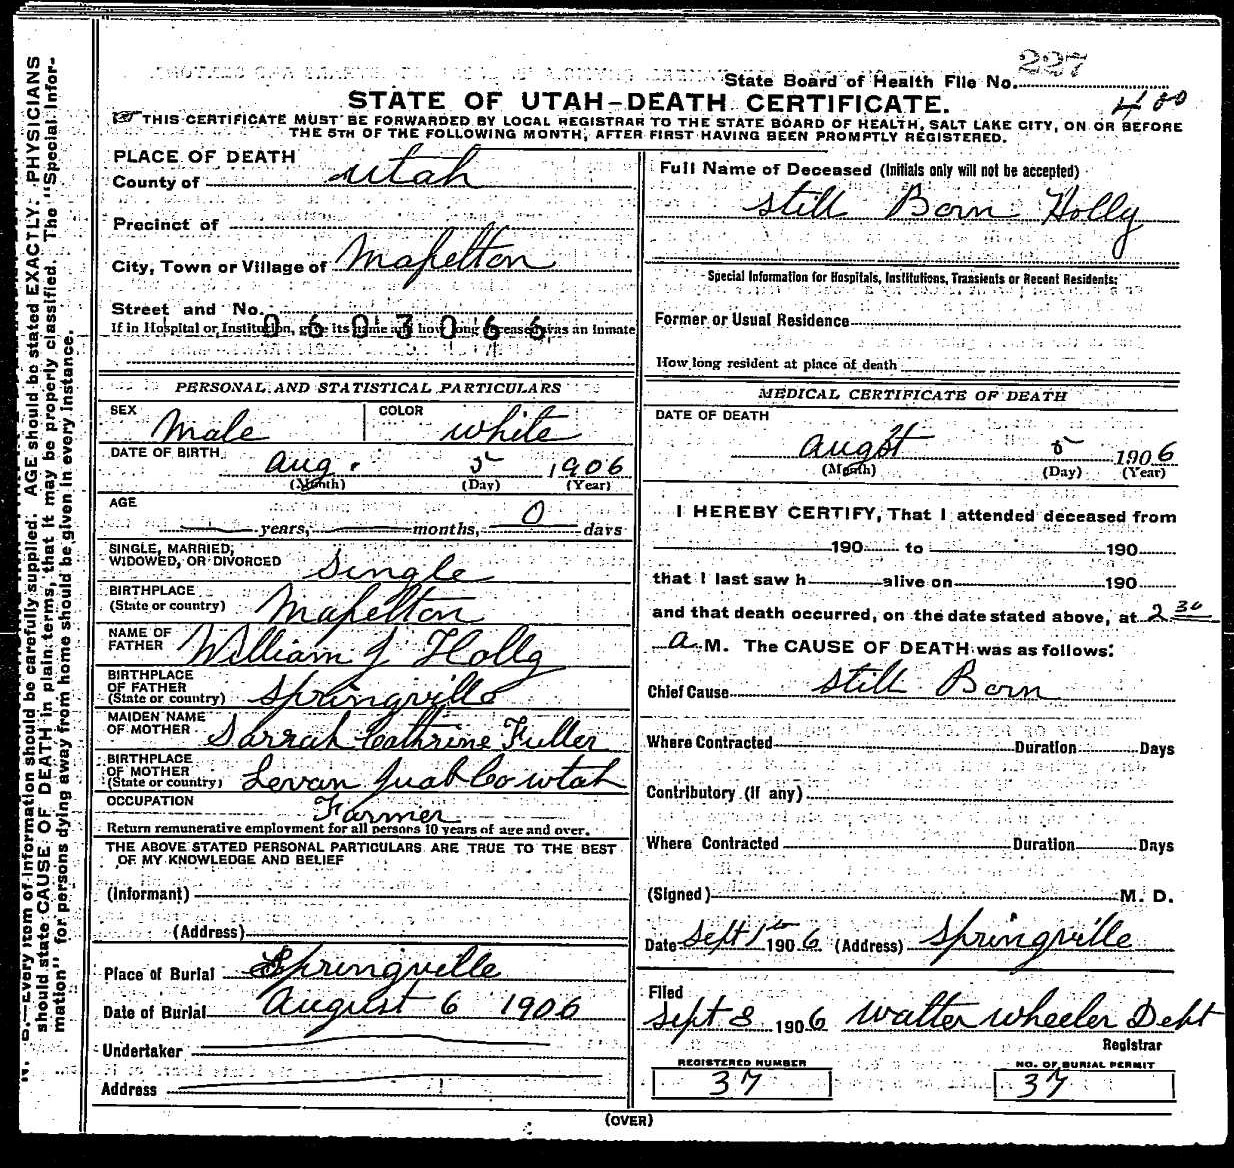 227
State Board of Health File No.
400
STATE OF UTAH—DEATH CERTIFICATE.
THIS CERTIFICATE MUST BE FORWARDED BY LOCAL REGISTRAR TO THE STATE BOARD OF HEALTH, SALT LAKE CITY, ON OR BEFORE
THE 5TH OF THE FOLLOWING MONTH, AFTER FIRST HAVING BEEN PROMPTLY REGISTERED.
PLACE OF DEATH
County of Utah
Precinct of
City, Town or Village of Mapelton
Street and No.
If in Hospital or Institution, give its name and how long deceased was an inmate
0603066
Full Name of Deceased (Initials only will not be accepted)
Still Born Holly
Special Information for Hospitals, Institutions, Transients or Recent Residents:
Former or Usual Residence
How long resident at place of death
PERSONAL AND STATISTICAL PARTICULARS
SEX Male COLOR white
DATE OF BIRTH Aug. 5 1906
(Month) (Day) (Year)
AGE
years, months, 0 days
SINGLE, MARRIED,
WIDOWED, OR DIVORCED Single
BIRTHPLACE
(State or country) Mapelton
NAME OF
FATHER William J Holly
BIRTHPLACE
OF FATHER
(State or country) Springville
MAIDEN NAME
OF MOTHER Sarrah Cathrine Fuller
BIRTHPLACE
OF MOTHER
(State or country) Levan Juab Co Utah
OCCUPATION Farmer
Return remunerative employment for all persons 10 years of age and over.
THE ABOVE STATED PERSONAL PARTICULARS ARE TRUE TO THE BEST
OF MY KNOWLEDGE AND BELIEF
(Informant)
(Address)
Place of Burial Springville
Date of Burial August 6 1906
Undertaker
Address
MEDICAL CERTIFICATE OF DEATH
DATE OF DEATH
Aught 5 1906
(Month) (Day) (Year)
I HEREBY CERTIFY, That I attended deceased from
190 to 190
that I last saw h alive on 190
and that death occurred, on the date stated above, at 2 30
a M. The CAUSE OF DEATH was as follows:
Chief Cause Still Born
Where Contracted Duration Days
Contributory (if any)
Where Contracted Duration Days
(Signed) M. D.
Date Sept 1st 1906 (Address) Springville
Filed
Sept 8 1906 Walter Wheeler Dept
Registrar
REGISTERED NUMBER
37
NO. OF BURIAL PERMIT
37
(OVER)
N. B.—Every item of information should be carefully supplied. AGE should be stated EXACTLY. PHYSICIANS
should state CAUSE OF DEATH in plain terms, that it may be properly classified. The "Special Infor-
mation" for persons dying away from home should be given in every instance.